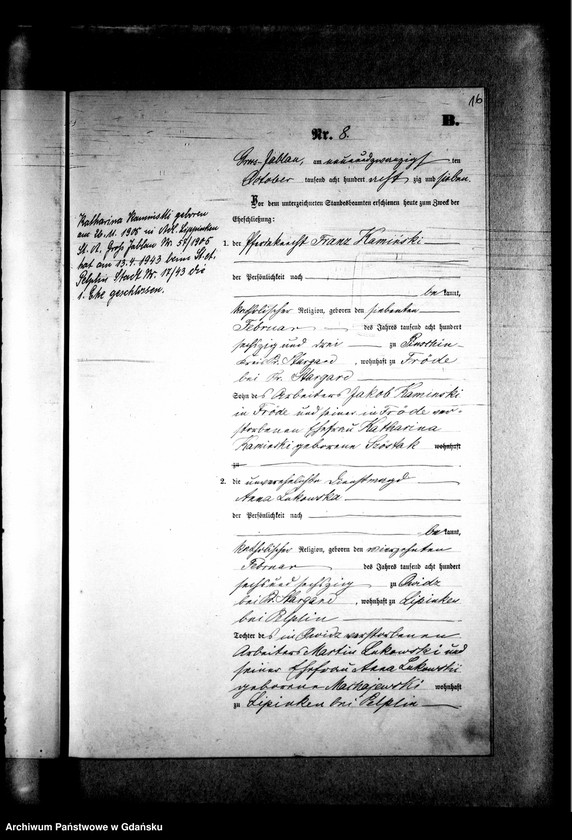 16
B.
Nr. 8.
Gross-Jablau, am neunundzwanzigsten
October tausend acht hundert acht zig und sieben.
Vor dem unterzeichneten Standesbeamten erschienen heute zum Zweck der
Eheschließung:
1. der Pferdeknecht Franz Kamiński
der Persönlichkeit nach
be kannt,
katholischer Religion, geboren den siebenten
Februar des Jahres tausend acht hundert
sechzig und drei zu
Kreis Pr. Stargard, wohnhaft zu Fröde
bei Pr. Stargard
Sohn des Arbeiters Jakob Kaminski
in Fröde und seiner in Fröde ver-
storbenen Ehefrau Katharina
Kaminski geborene Szostak wohnhaft
zu
2. die unverehelichte Dienstmagd
Anna Lukowska
der Persönlichkeit nach
be kannt,
katholischer Religion, geboren den vierzehnten
Februar des Jahres tausend acht hundert
sechs und sechszig zu Owidz
bei Pr. Stargard, wohnhaft zu Lipinken
bei Pelplin
Tochter des in Owidz verstorbenen
Arbeiters Martin Lukowski und
seiner Ehefrau Anna Lukowski
geborene Machajewski wohnhaft
zu Lipinken bei Pelplin
Katharina geboren
am 26.11.1905 in Adl. Lippinken
St. A. Groß Jablau Nr. 57/1905
hat am 13.4.1943 beim St. A.
Pelplin Stadt Nr. 17/43 die
1. Ehe geschlossen.
Archiwum Państwowe w Gdańsku